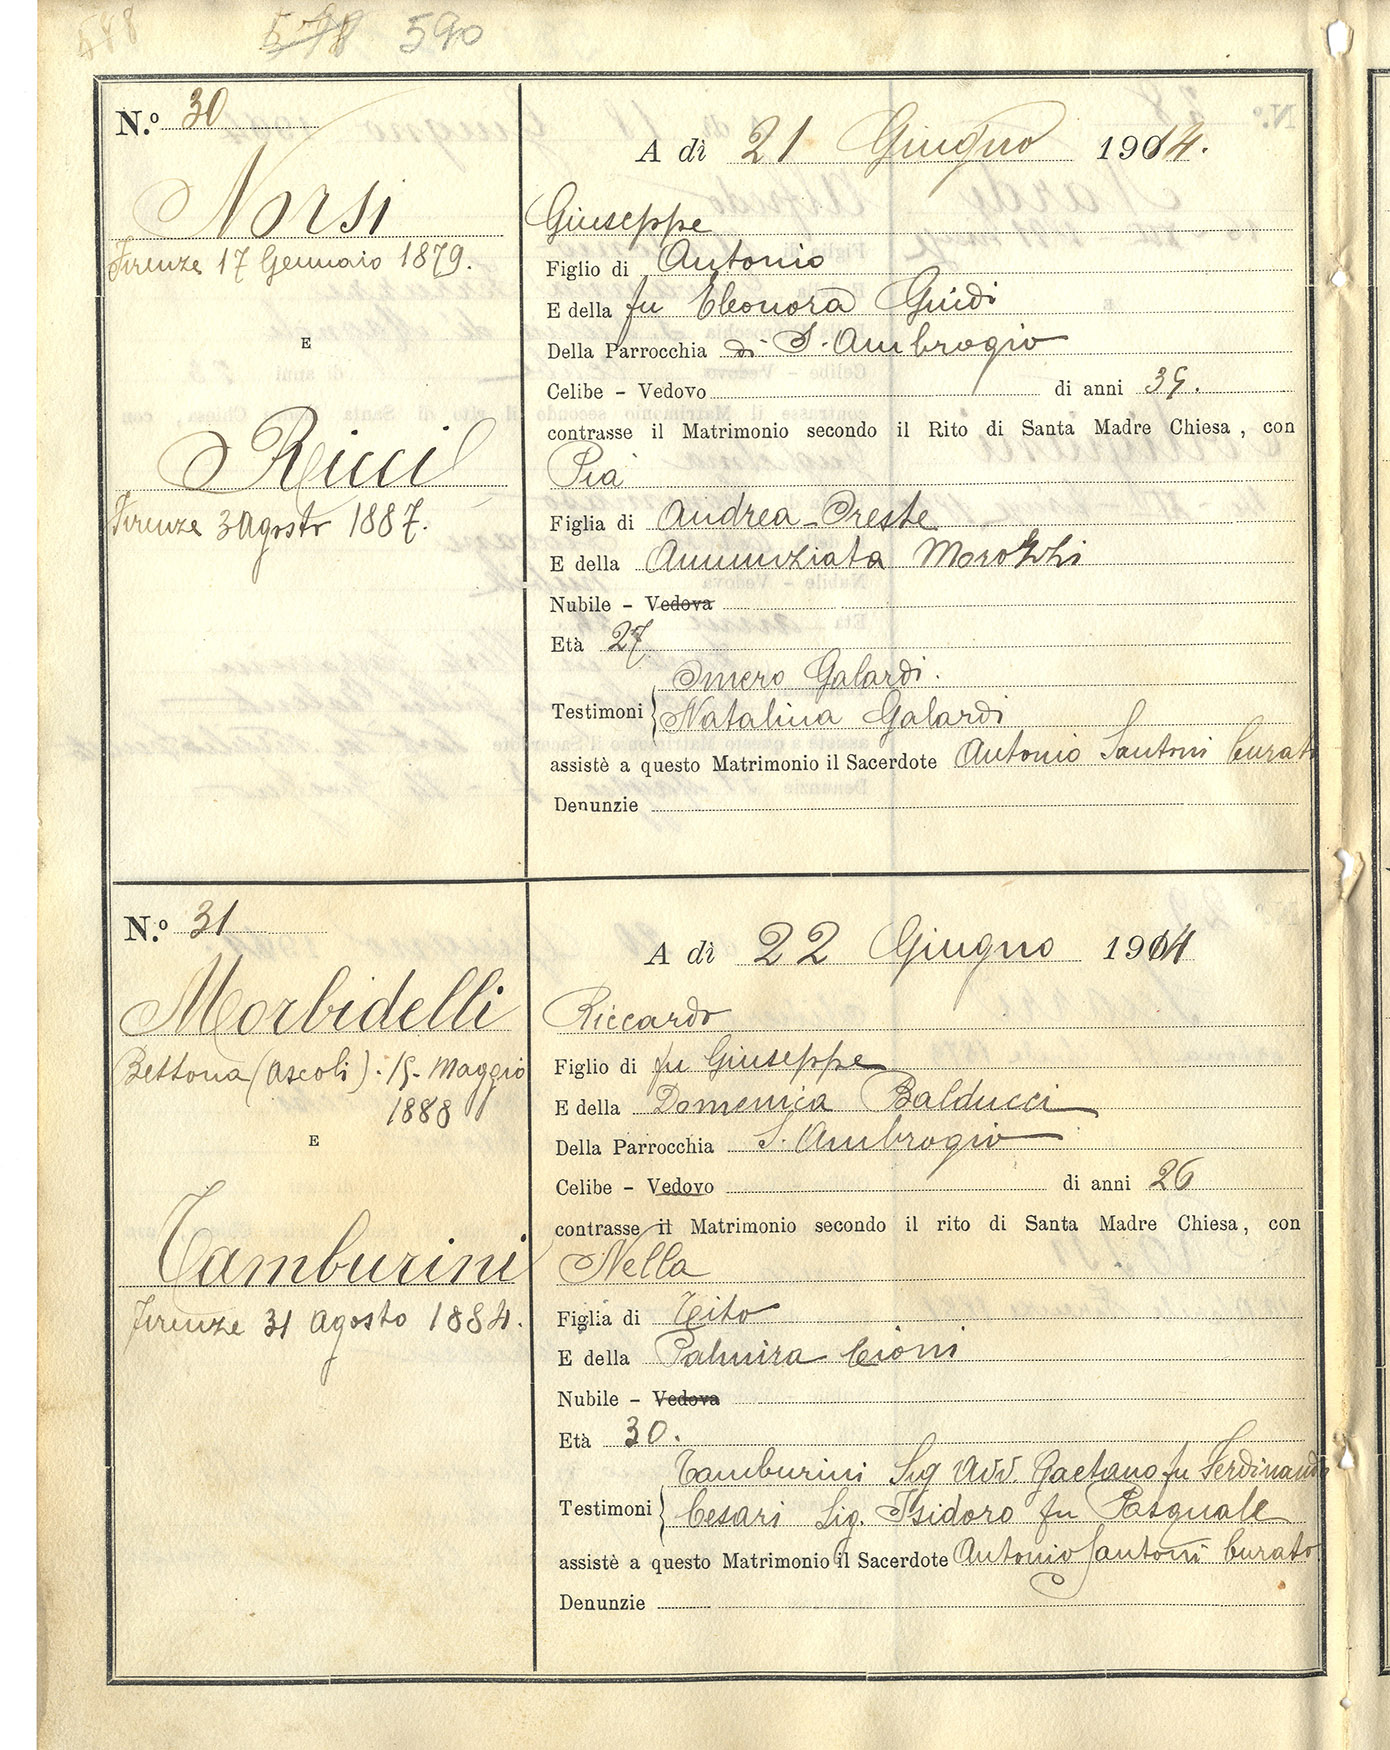 548 590
N.º 30
A dì 21 Giugno 1914.
Norsi
Firenze 17 Gennaio 1879.
E
Ricci
Firenze 3 Agosto 1887.
Giuseppe
Figlio di Antonio
E della fu Eleonora Guidi
Della Parrocchia di S. Ambrogio
Celibe - Vedovo di anni 35.
contrasse il Matrimonio secondo il Rito di Santa Madre Chiesa, con
Pia
Figlia di Andrea-Oreste
E della Annunziata
Nubile - Vedova
Età 27
Omero Galardi.
Testimoni Natalina Galardi
assistè a questo Matrimonio il Sacerdote Antonio Santoni Curato
Denunzie
N.º 31
A dì 22 Giugno 1914
Morbidelli
Bettona (Ascoli). 15. Maggio
1888
E
Tamburini
Firenze 31 Agosto 1884.
Riccardo
Figlio di fu Giuseppe
E della Domenica Balducci
Della Parrocchia S. Ambrogio
Celibe - Vedovo di anni 26
contrasse il Matrimonio secondo il rito di Santa Madre Chiesa, con
Nella
Figlia di Tito
E della Palmira Cioni
Nubile - Vedova
Età 30.
Tamburini Sig Avv Gaetano fu Ferdinando
Testimoni Cesari Sig. Isidoro fu Pasquale
assistè a questo Matrimonio il Sacerdote Antonio Santoni Curato
Denunzie